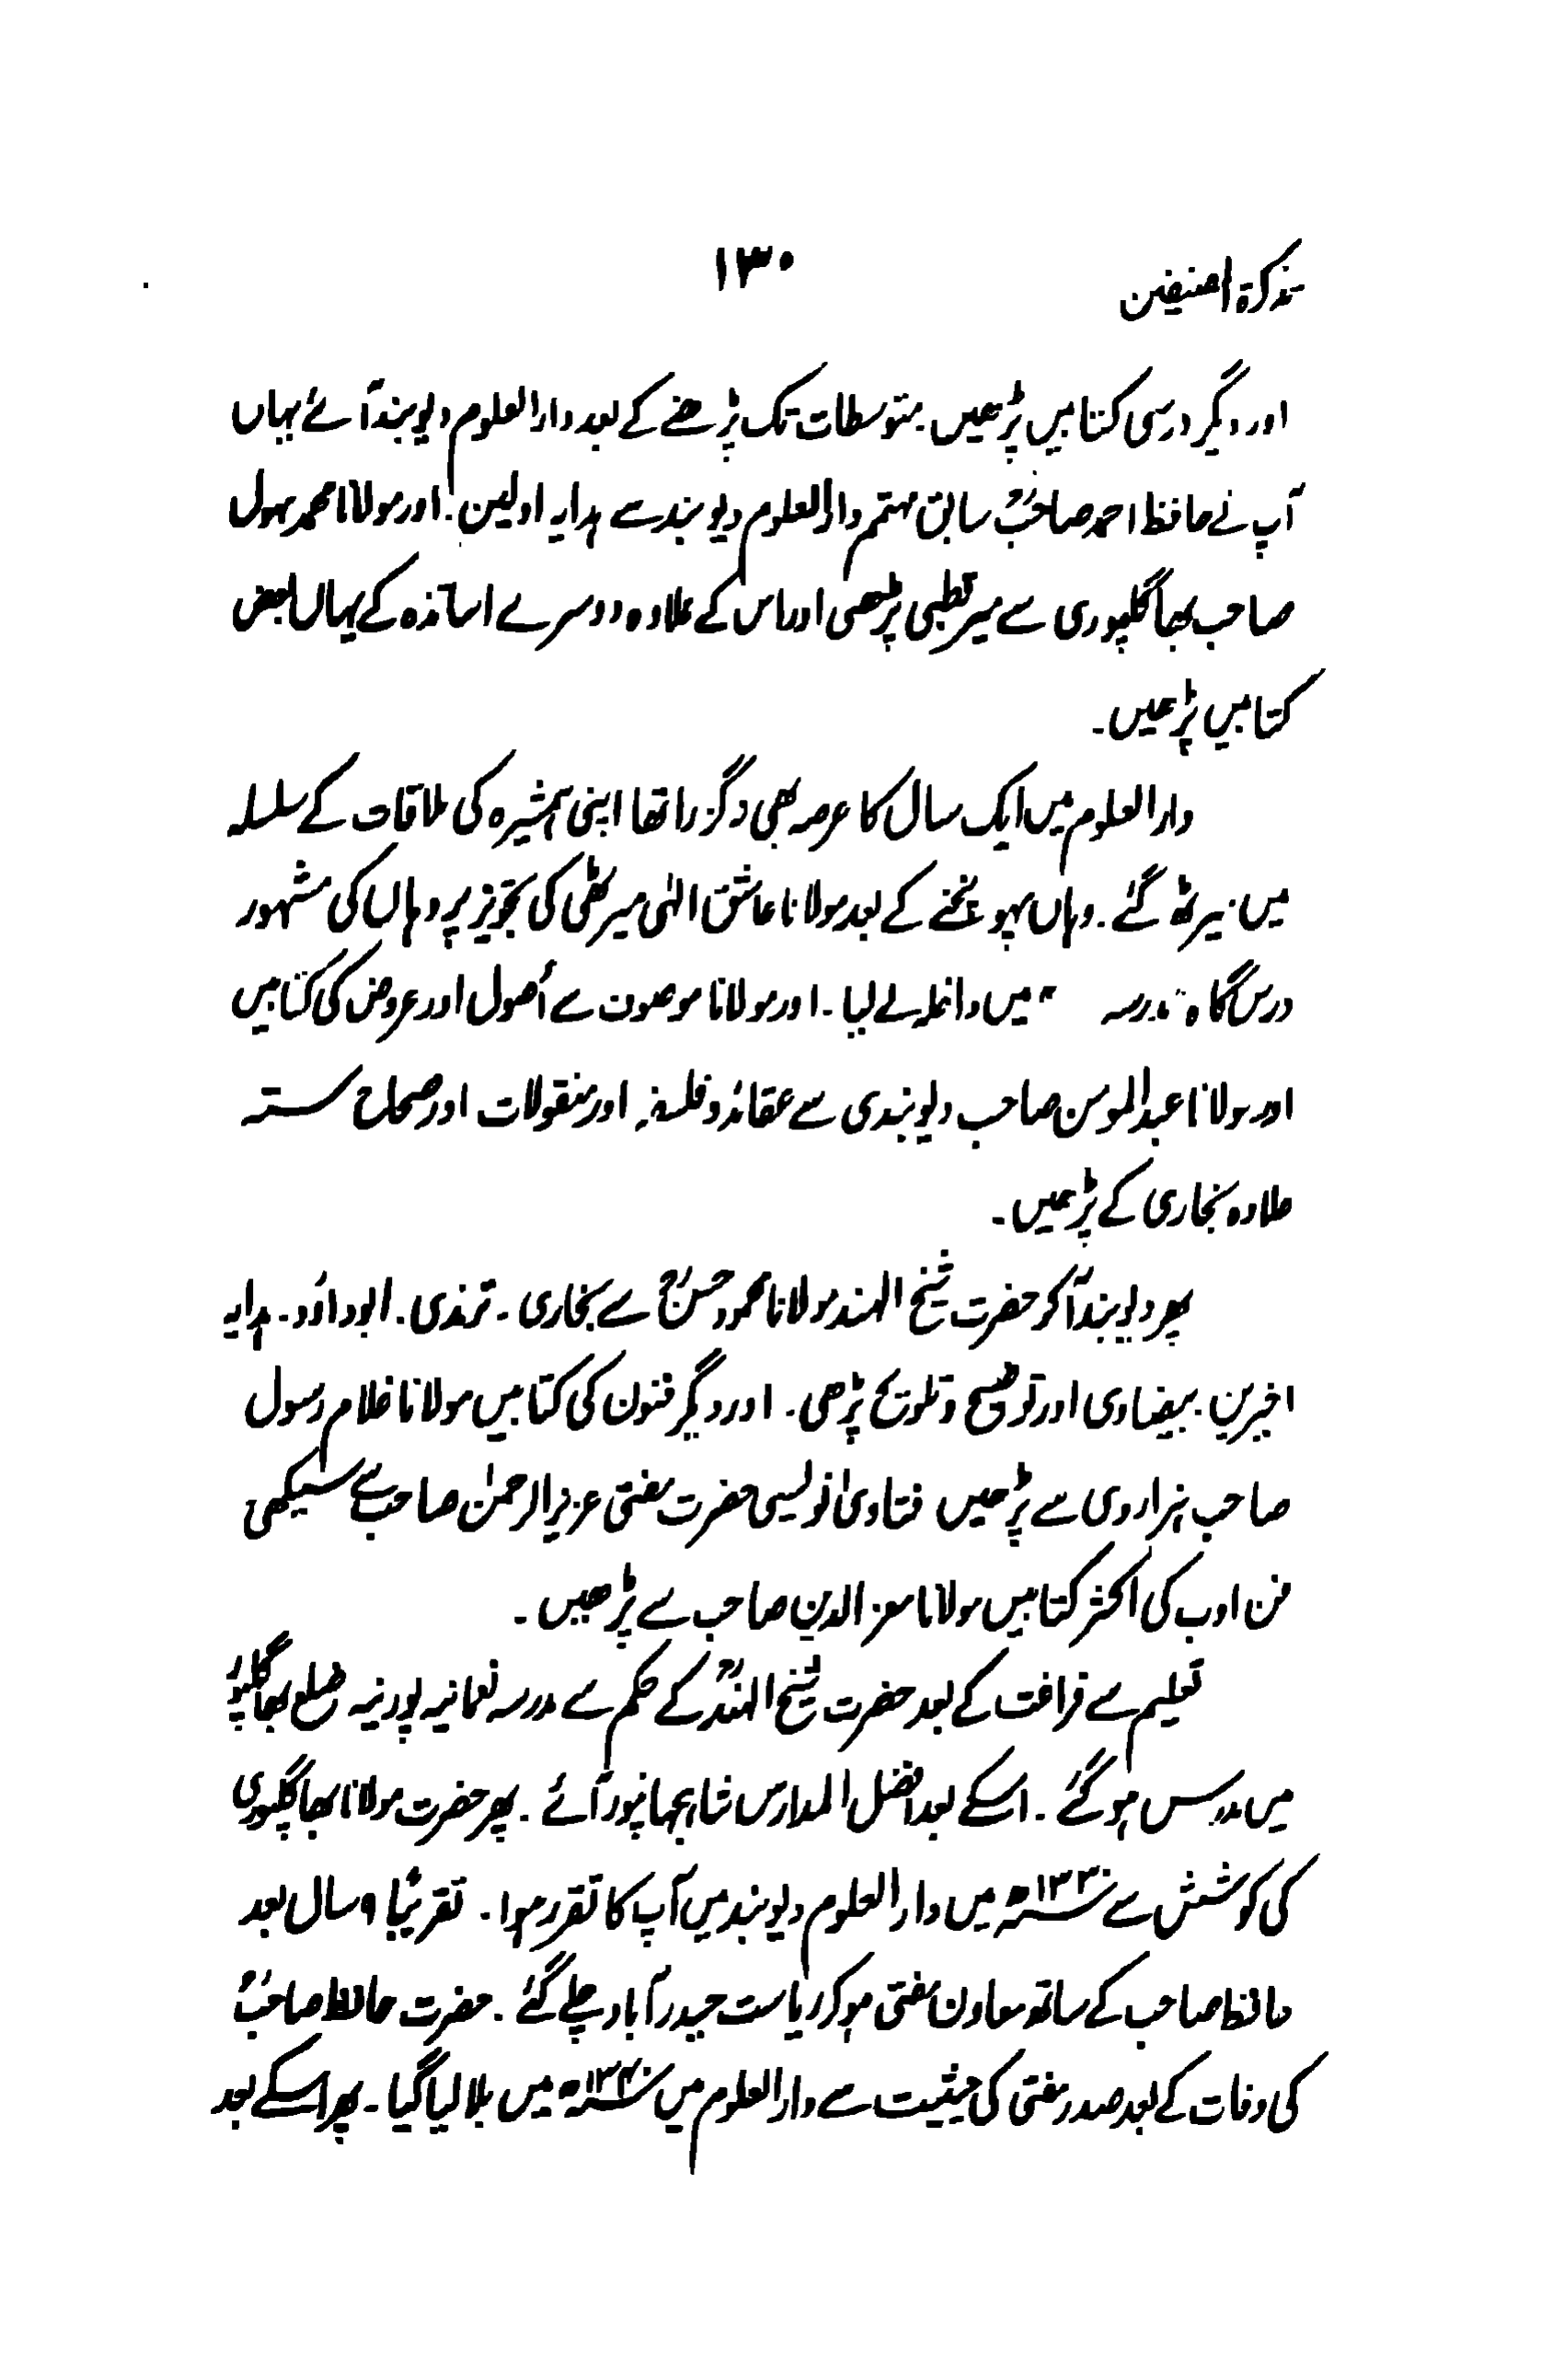 تذکرۃ المصنفین
۱۳۰
اور دیگر درسی کتابیں پڑھیں۔ متوسطات تک پڑھنے کے بعد دارالعلوم دیوبند آئے یہاں
آپ نے حافظ احمد صاحبؒ سابق مہتمم دارالعلوم دیوبند سے ہدایہ اولین۔ اور مولانا محمد سہول
صاحب بھاگلپوری سے میر قطبی پڑھی اور اس کے علاوہ دوسرے اساتذہ کے یہاں بعض
کتابیں پڑھیں۔
دارالعلوم میں ایک سال کا عرصہ بھی نہ گزرا تھا اپنی ہمشیرہ کی ملاقات کے سلسلہ
میں میرٹھ گئے۔ وہاں پہونچنے کے بعد مولانا عاشق الٰہی میرٹھی کی تجویز پر وہاں کی مشہور
درس گاہ "مدرسہ " میں داخلہ لے لیا۔ اور مولانا موصوف سے اُصول اور عروض کی کتابیں
اور مولانا عبدالمومن صاحب دیوبندی سے عقائد و فلسفہ اور منقولات اور صحاح ستہ
علاوہ بخاری کے پڑھیں۔
پھر دیوبند آکر حضرت شیخ الہند مولانا محمود حسنؒ سے بخاری۔ ترمذی۔ ابوداؤد۔ ہدایہ
اخیرین۔ بیضاوی اور توضیح و تلویح پڑھی۔ اور دیگر فنون کی کتابیں مولانا غلام رسول
صاحب ہزاروی سے پڑھیں فتاویٰ نویسی حضرت مفتی عزیز الرحمٰن صاحب سے سیکھی
فن ادب کی اکثر کتابیں مولانا معز الدین صاحب سے پڑھیں۔
تعلیم سے فراغت کے بعد حضرت شیخ الہندؒ کے حکم سے مدرسہ نعمانیہ پورنیہ ضلع بھاگلپور
میں مدرس ہوگئے۔ اسکے بعد افضل المدارس شاہجہانپور آئے۔ پھر حضرت مولانا بھاگلپوری
کی کوشش سے ۱۳۳۰ھ میں دارالعلوم دیوبند میں آپ کا تقرر ہوا۔ تقریبًا ۹ سال بعد
حافظ صاحب کے ساتھ معاون مفتی ہوکر ریاست حیدرآباد چلے گئے۔ حضرت حافظ صاحبؒ
کی وفات کے بعد صدر مفتی کی حیثیت سے دارالعلوم میں ۱۳۴۰ھ میں بلا لیا گیا۔ پھر اسکے بعد